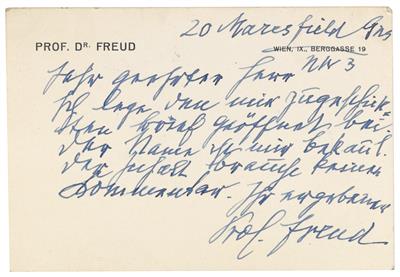 20 Maresfield Gns
PROF. DR. FREUD
WIEN, IX., BERGGASSE 19
NW 3
Sehr geehrter Herr
Ich lege den mir zugeschick-
ten Brief geöffnet bei.
Der Name ist mir bekannt.
Der Inhalt brauche keinen
Kommentar. Ihr ergebener
Freud